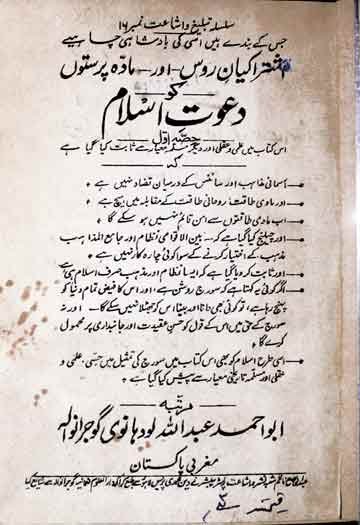 سلسلہ تبلیغ و اشاعت نمبر ۱۶
جس کے بندے ہیں اسی کی بادشاہی چاہیے
اشتراکیان روس - اور - مادہ پرستوں
کو
دعوت اسلام
حصہ اول
اس کتاب میں علمی و عقلی اور دیگر مسلمہ معیار سے ثابت کیا گیا ہے
کہ
آسمانی مذاہب اور سائنس کے درمیان تضاد نہیں ہے۔
اور مادی طاقت روحانی طاقت کے مقابلہ میں ہیچ ہے۔
اب مادی طاقتوں سے امن قائم نہیں ہو سکے گا۔
اور چیلنج کیا گیا ہے کہ۔ بین الاقوامی نظام اور جامع المذاہب
مذہب کے اختیار کرنے کے سوا کوئی چارہ کار نہیں ہے۔
اور ثابت کر دیا گیا ہے کہ ایسا نظام اور مذہب صرف اسلام ہی ہے
اگر کوئی یہ کہتا ہے کہ سورج روشن ہے، اور اس کا فیض تمام دنیا کو
پہنچ رہا ہے، تو کوئی بھی دانا اور بینا، اس کو جھٹلا نہیں سکے گا۔ اور نہ
سورج کے حق میں اس کے قول کو حسن عقیدت اور جانبداری پر محمول
کرے گا۔
اسی طرح اسلام کو بھی اس کتاب میں سورج کی تمثیل میں حسی، علمی و
عقلی اور مسلمہ تاریخی معیار سے پیش کیا گیا ہے۔
مرتبہ
ابو احمد عبداللہ لودہانوی گوجرانوالہ
مغربی پاکستان
قیمت